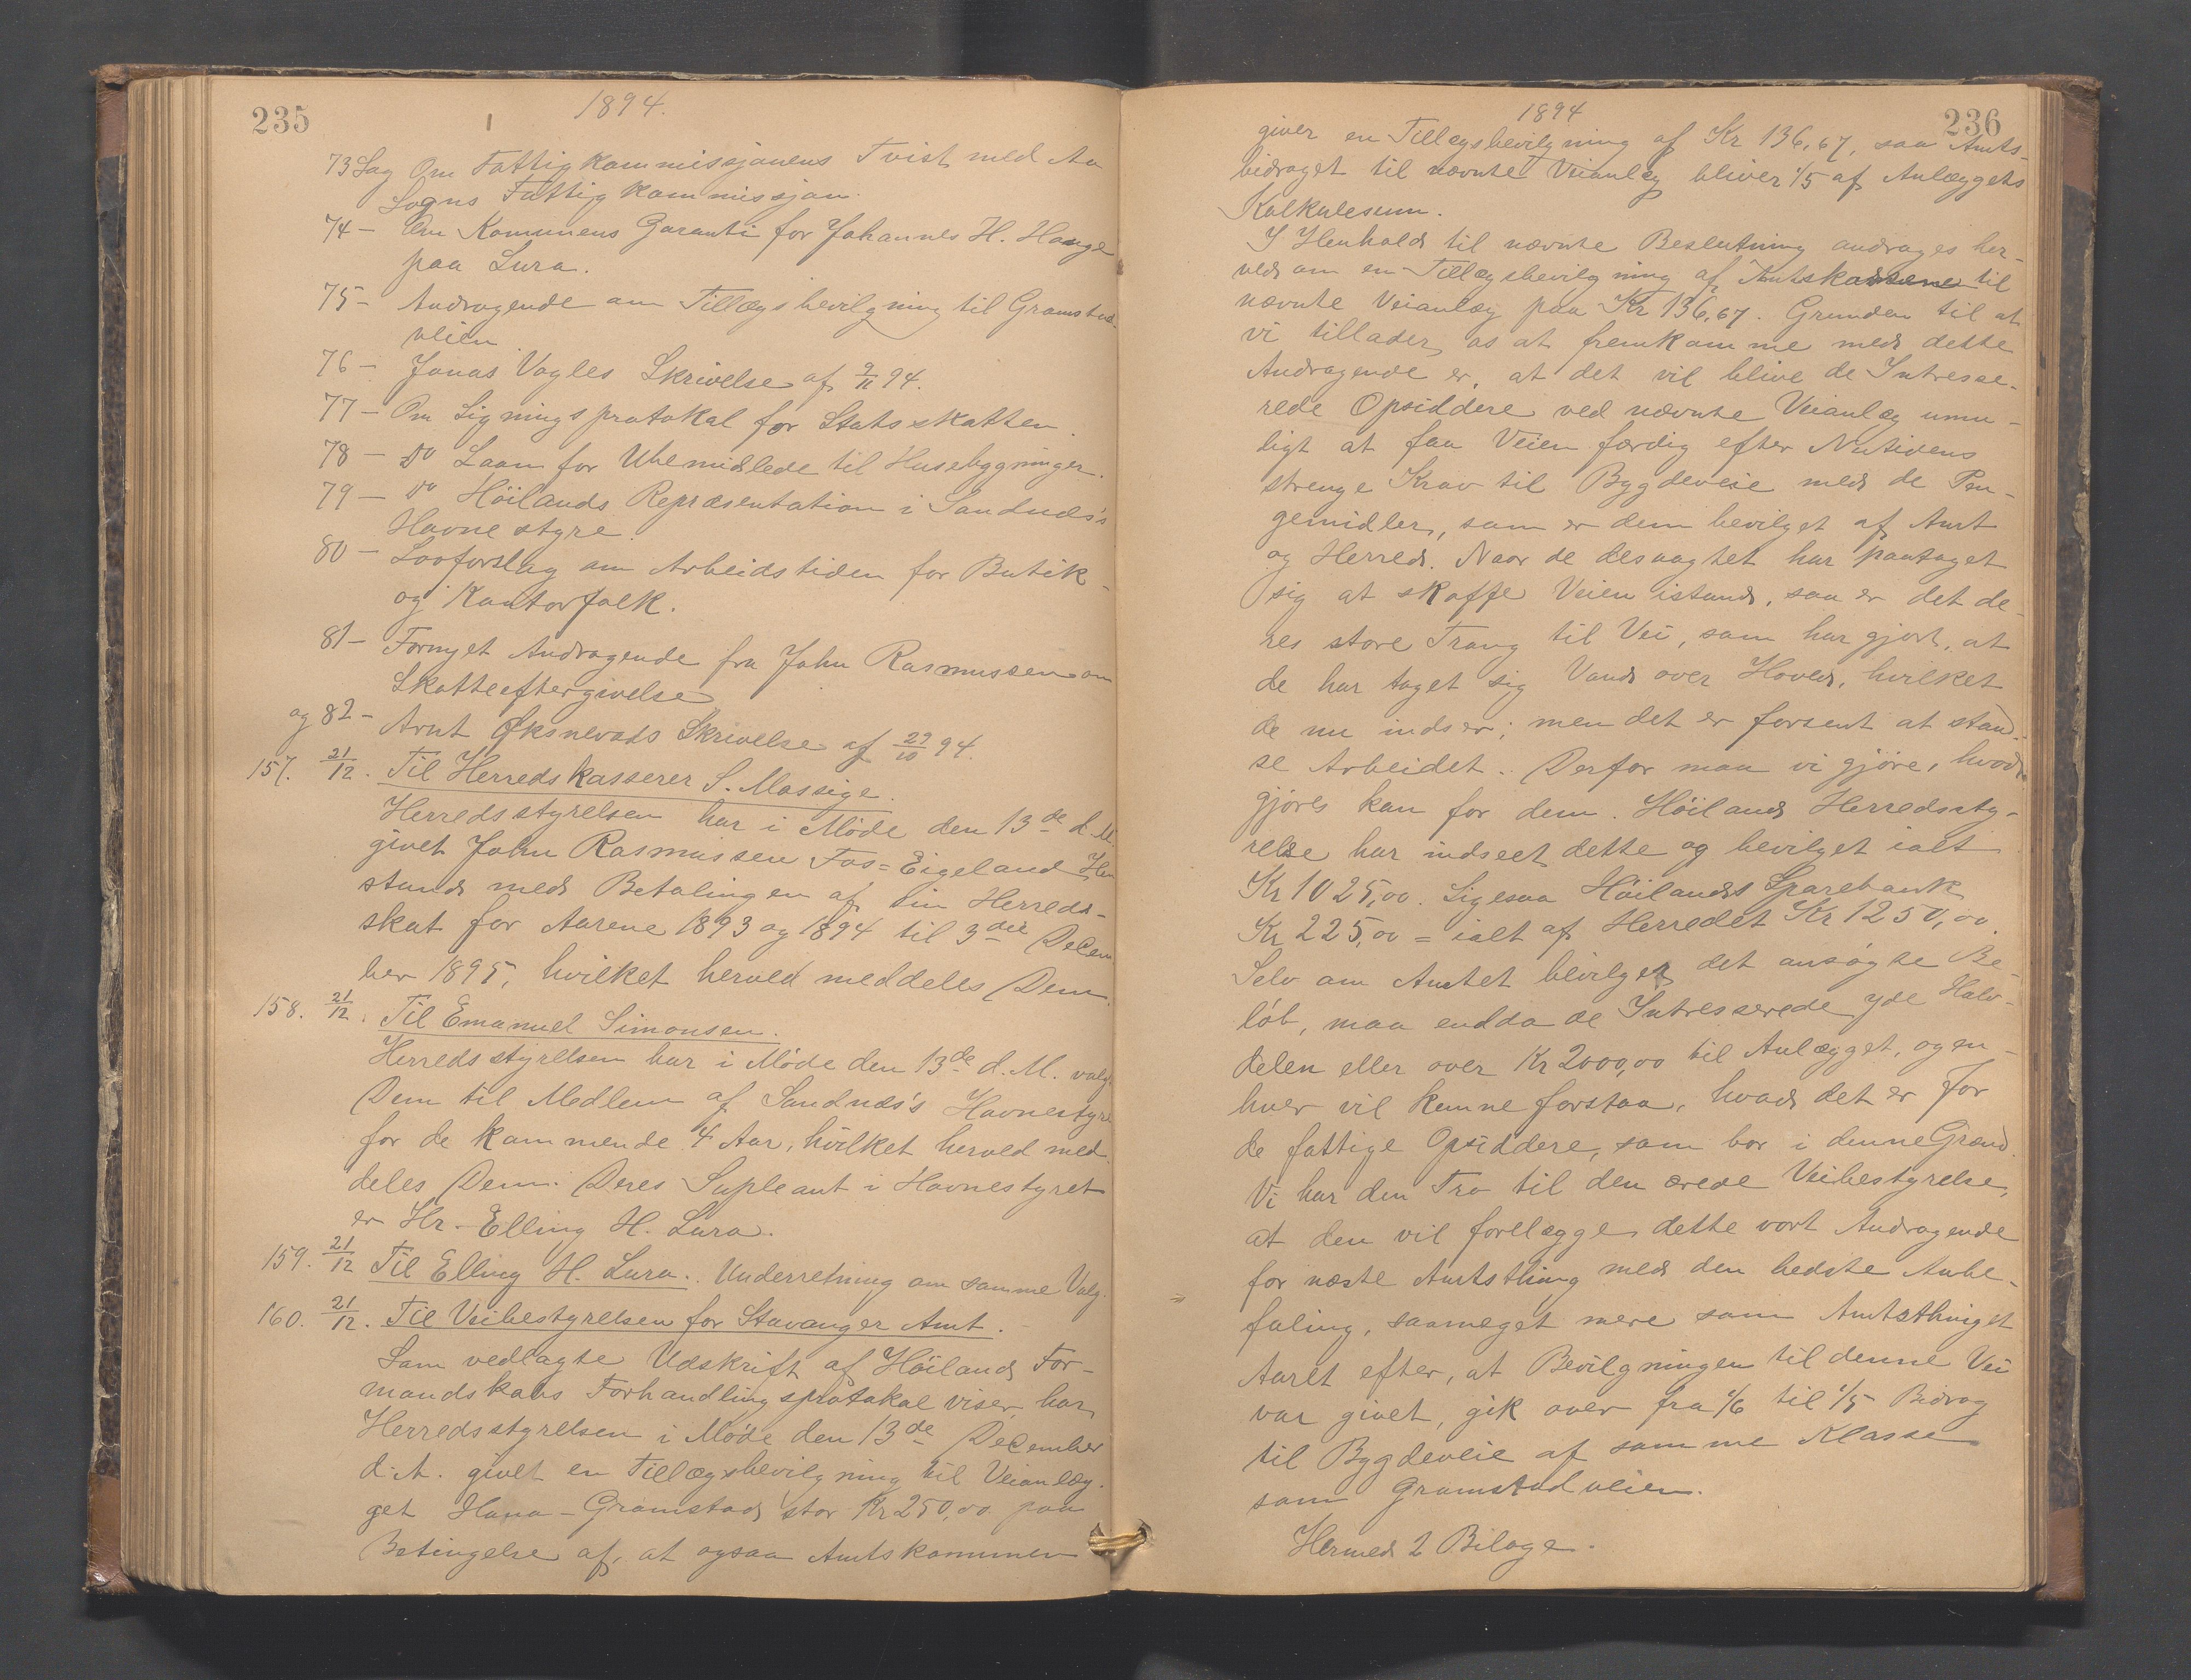 235
1894.
73 Sag Om Fattigkommissjonens Tvist med Aa
Sogns Fattigkommissjon.
74 - Om Kommunens Garanti for Johannes H. Hauge
paa Lura.
75 - Andragende om Tillægsbevilgning til Gramstad-
veien
76 - Jonas Vagles Skrivelse af 9/11 94.
77 - Om Ligningsprotokol for Statsskatten.
78 - Do Laan for Ubemidlede til Husebygninger.
79 - Do Höilands Repræsentation i Sandnæs's
Havnestyre.
80 - Lovforslag om Arbeidstiden for Butik-
og Kontorfolk.
81 - Fornyet Andragende fra John Rasmussen om
Skatteeftergivelse
og 82 - Arnt Øksnevads Skrivelse af 29/10 94.
157. 21/12. Til Herredskasserer S. Massige.
Herredsstyrelsen har i Möde den 13de d. M.
givet John Rasmussen Fos=Eigeland Hen
stand med Betalingen af sin Herreds-
skat for Aarene 1893 og 1894 til 3die Decem
ber 1895, hvilket herved meddeles Dem.
158. 21/12. Til Emanuel Simonsen.
Herredsstyrelsen har i Möde den 13de d. M. valgt
Dem til Medlem af Sandnæs's Havnestyre
for de kommende 4 Aar, hvilket herved med
deles Dem. Deres Supleant i Havnestyret
er Hr. Elling H. Lura.
159. 21/12 Til Elling H. Lura. Underretning om samme Valg.
160. 21/12. Til Veibestyrelsen for Stavanger Amt.
Som vedlagte Udskrift af Höilands For-
mandskabs Forhandlingsprotokol viser, har
Herredsstyrelsen i Möde den 13de December
d. A. givet en Tillægsbevilgning til Veianlæg-
get Hana-Gramstad stor Kr 250,00 paa
Betingelse af, at ogsaa Amtskommunen
1894
236
giver en Tillægsbevilgning af Kr 136,67, saa Amts-
bidraget til nævnte Veianlæg bliver 1/5 af Anlæggets
Kalkulesum.
I Henhold til nævnte Beslutning andrages her-
ved om en Tillægsbevilgning af Amtskassene til
nævnte Veianlæg paa Kr 136,67. Grunden til at
vi tillader os at fremkomme med dette
Andragende er, at det vil blive de Intresse-
rede Opsiddere ved nævnte Veianlæg umu-
ligt at faa Veien færdig efter Nutidens
strenge Krav til Bygdeveie med de Pen-
gemidler, som er dem bevilget af Amt
og Herred. Naar de desuagtet har paataget
sig at skaffe Veien istand, saa er det de-
res store Trang til Vei, som har gjort, at
de har taget sig Vand over Hoved, hvilket
de nu indser; men det er forsent at stand-
se Arbeidet. Derfor maa vi gjöre, hvad
gjöres kan for dem. Höilands Herredssty-
relse har indseet dette og bevilget ialt
Kr 1025,00. Ligesaa Höilands Sparebank
Kr 225,00 = ialt af Herredet Kr 1250,00.
Selv om Amtet bevilger det ansögte Be-
löb, maa endda de Intresserede yde Halv-
delen eller over Kr 2000,00 til Anlægget, og en-
hver vil kunne forstaa, hvad det er for
de fattige Opsiddere, som bor i denne Grænd.
Vi har den Tro til den ærede Veibestyrelse,
at den vil forelægge dette vort Andragende
for næste Amtsthing med den bedste Anbe-
faling, saameget mere som Amtsthinget
Aaret efter, at Bevilgningen til denne Vei
var givet, gik over fra 1/6 til 1/5 Bidrag
til Bygdeveie af samme Klasse
som Gramstadveien.
Hermed 2 Bilage.